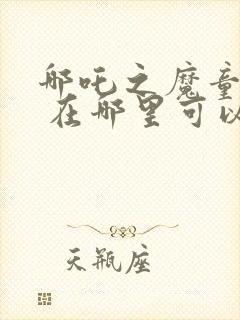 哪吒之魔童
在哪里可以
天瓶座